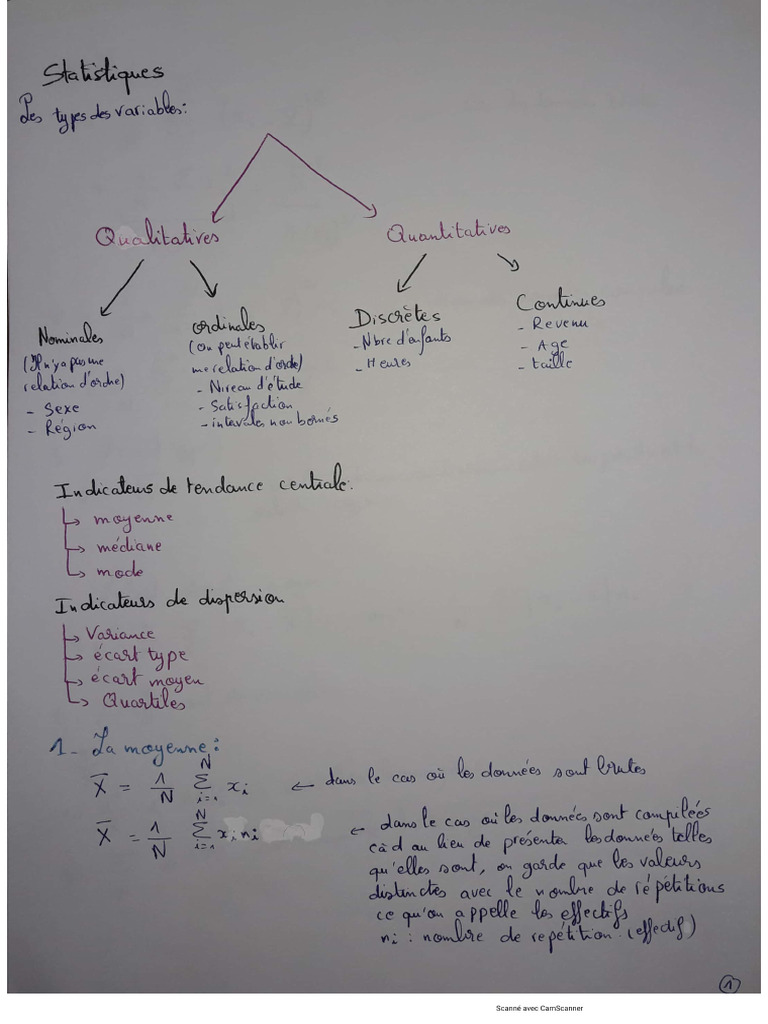 Statistiques
Les types des variables:
Qualitatives
Quantitatives
Nominales
(Il n'y a pas une
relation d'ordre)
- Sexe
- Région
ordinales
(On peut établir
une relation d'ordre)
- Niveau d'étude
- Satisfaction
- intervales non bornés
Discrètes
- Nbre d'enfants
- Heures
Continues
- Revenu
- Age
- taille
Indicateurs de tendance centrale:
moyenne
médiane
mode
Indicateurs de dispersion
Variance
écart type
écart moyen
Quartiles
1- La moyenne:
X̄ = 1/N Σ_{i=1}^{N} xi ← dans le cas où les données sont brutes
X̄ = 1/N Σ_{i=1}^{N} xi ni ← dans le cas où les données sont compilées
càd au lieu de présenter les données telles
qu'elles sont, on garde que les valeurs
distinctes avec le nombre de répétitions
ce qu'on appelle les effectifs
ni : nombre de repétition (effectif)
1
Scanné avec CamScanner